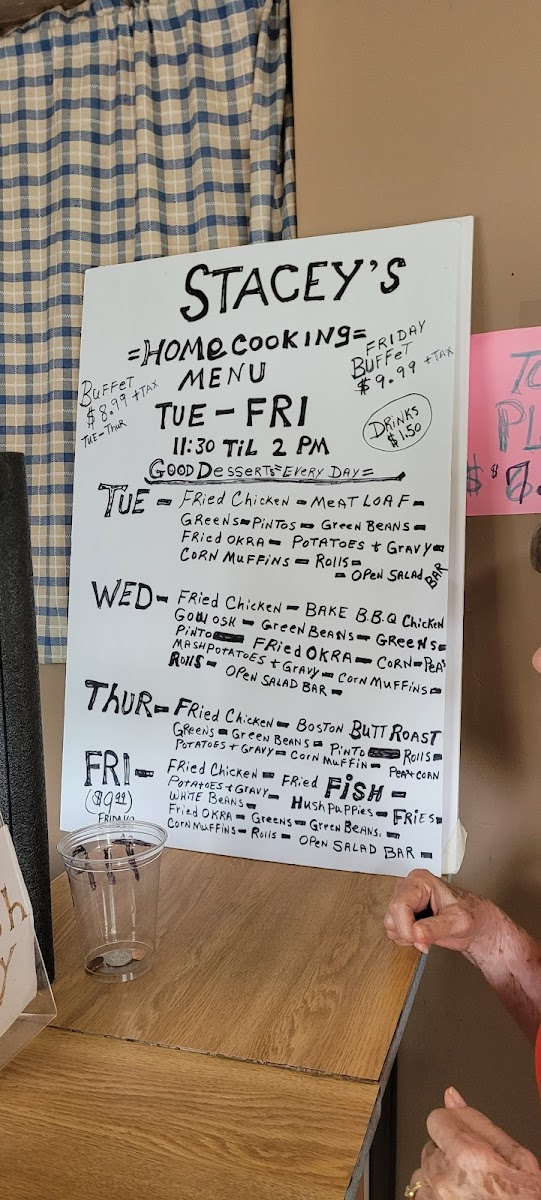 STACEY'S
=HOMECOOKING=
MENU
BUFFET
$8.99 +TAX
TUE-THUR
FRIDAY
BUFFET
$9.99 +TAX
TUE-FRI
11:30 TIL 2 PM
DRINKS
$1.50
GOOD DESSERTS=EVERY DAY=
TUE- FRIED CHICKEN - MEAT LOAF-
GREENS-PINTOS- GREEN BEANS-
FRIED OKRA- POTATOES + GRAVY-
CORN MUFFINS- ROLLS-
- OPEN SALAD BAR
WED- FRIED CHICKEN- BAKE B.B.Q CHICKEN
GOULOSH - GREEN BEANS- GREENS-
PINTO FRIED OKRA- CORN-PEAS
MASHPOTATOES + GRAVY- CORN MUFFINS-
ROLLS- OPEN SALAD BAR-
THUR- FRIED CHICKEN- BOSTON BUTT ROAST
GREENS- GREEN BEANS- PINTO ROLLS-
POTATOES + GRAVY- CORN MUFFIN- PEA+CORN
FRI- FRIED CHICKEN- FRIED FISH-
($9.99)
FRIDAY
POTATOES + GRAVY- HUSHPUPPIES- FRIES-
WHITE BEANS-
FRIED OKRA- GREENS- GREEN BEANS.
CORN MUFFINS- ROLLS- OPEN SALAD BAR-